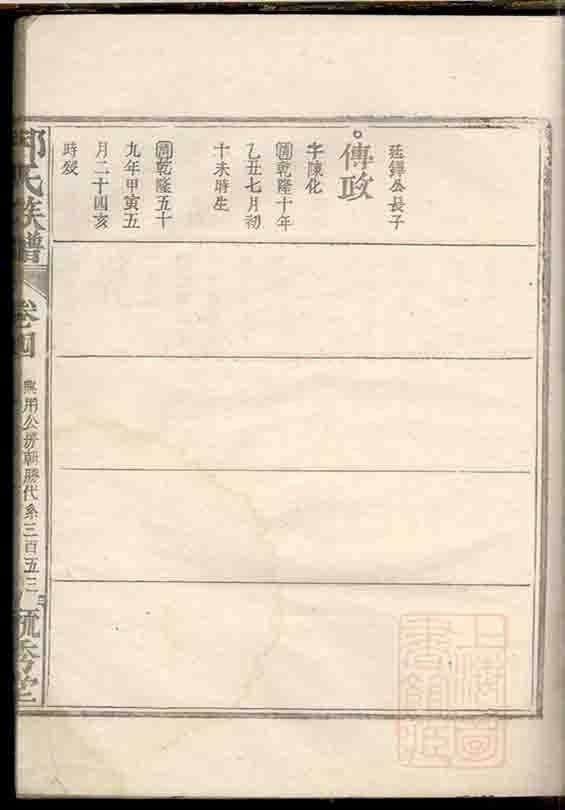 延鐸公長子
傳政
字陳化
乾隆十年
乙丑七月初
十未時生
乾隆五十
九年甲寅五
月二十四亥
時歿
氏族譜
卷四
無用公房朝勝代系三百五三
毓秀堂
上海圖
書館藏